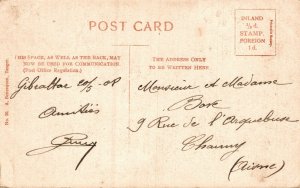 POST CARD
INLAND
½d.
STAMP.
FOREIGN
1d.
THIS SPACE, AS WELL AS THE BACK, MAY
NOW BE USED FOR COMMUNICATION.
(Post Office Regulation.)
THE ADDRESS ONLY
TO BE WRITTEN HERE.
Gibraltar 20/5-08
Amitiés
Monsieur et Madame
Bové
9 Rue de l'Arquebuse
Chauny
(Aisne)